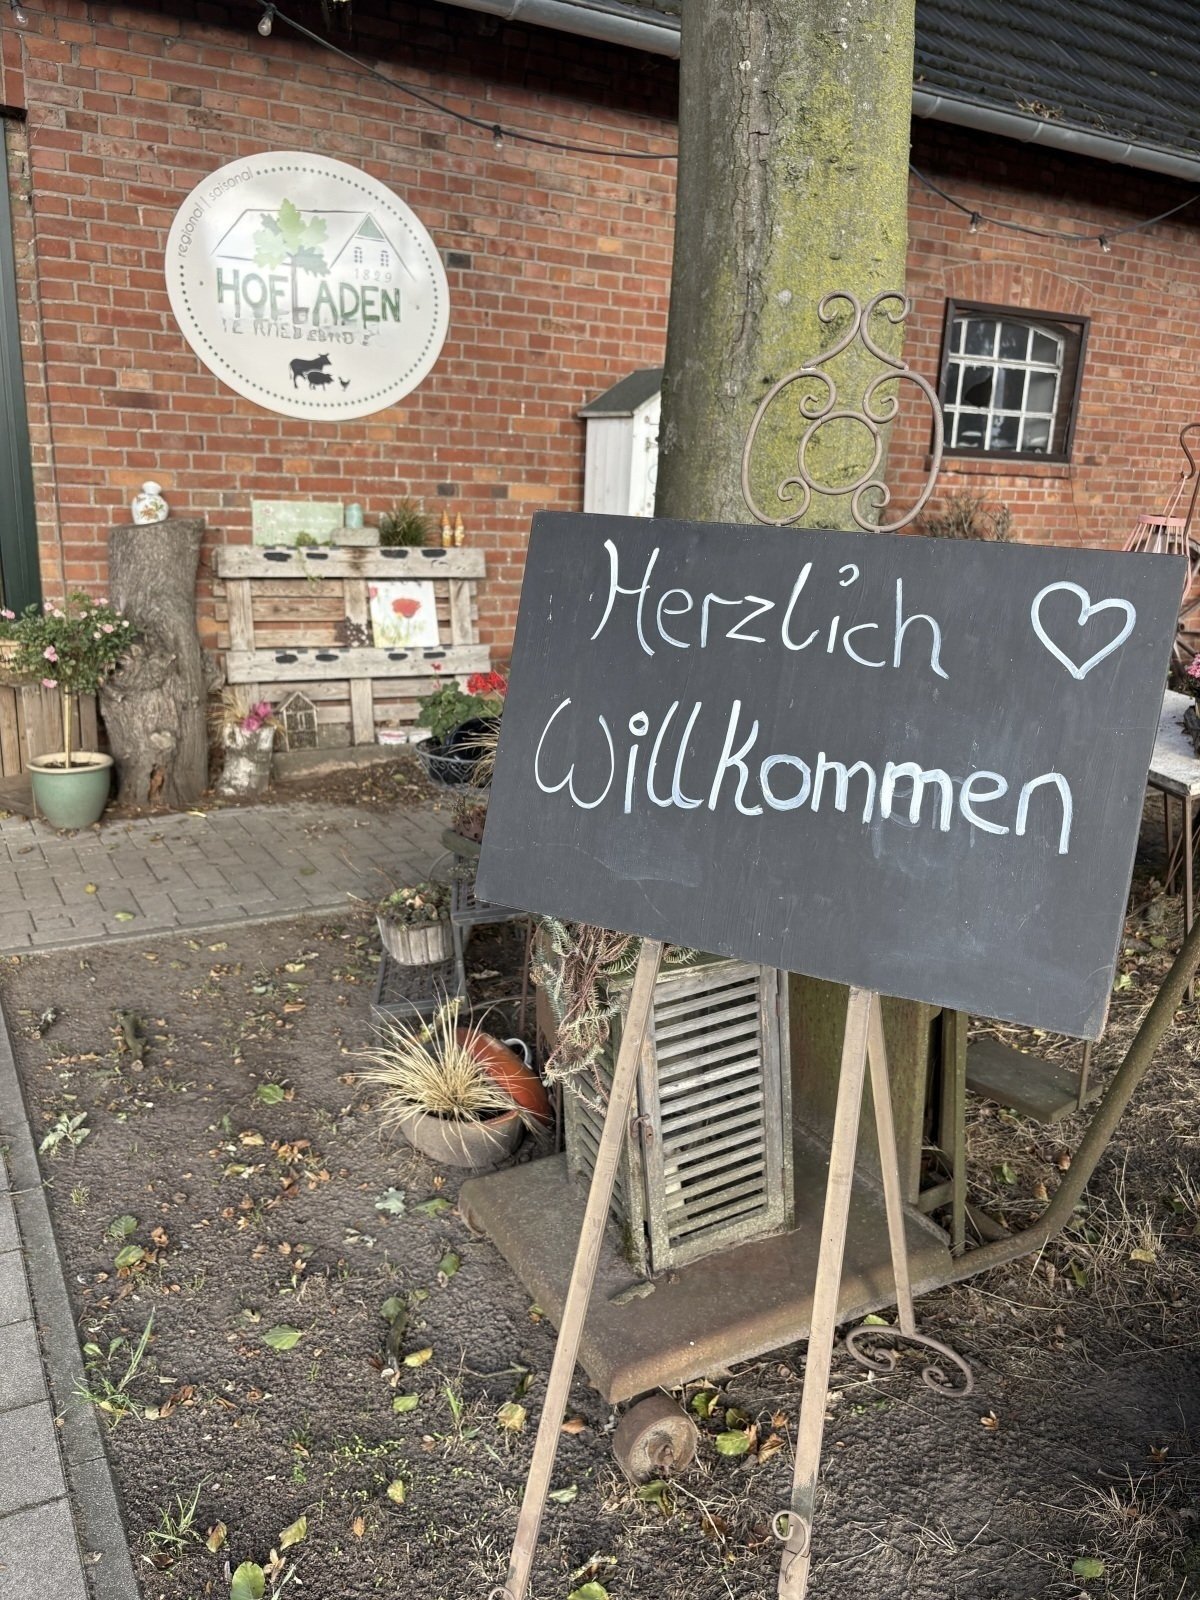 regional | saisonal
1829
HOFLADEN
Herzlich
Willkommen